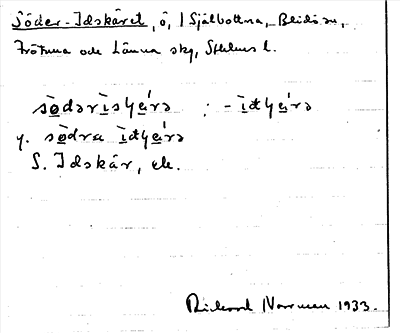 Söder-Idskäret, ö, i Själbottna, Blidö sn,
Frötuna och Länna skg, Sthlms l.
sö̀dəris̀ɥä́rə ; -ìdɥä́rə
y. sö̀dra ìdɥä́rə
S. Idskär, ek.
Rickard Norrman 1933.